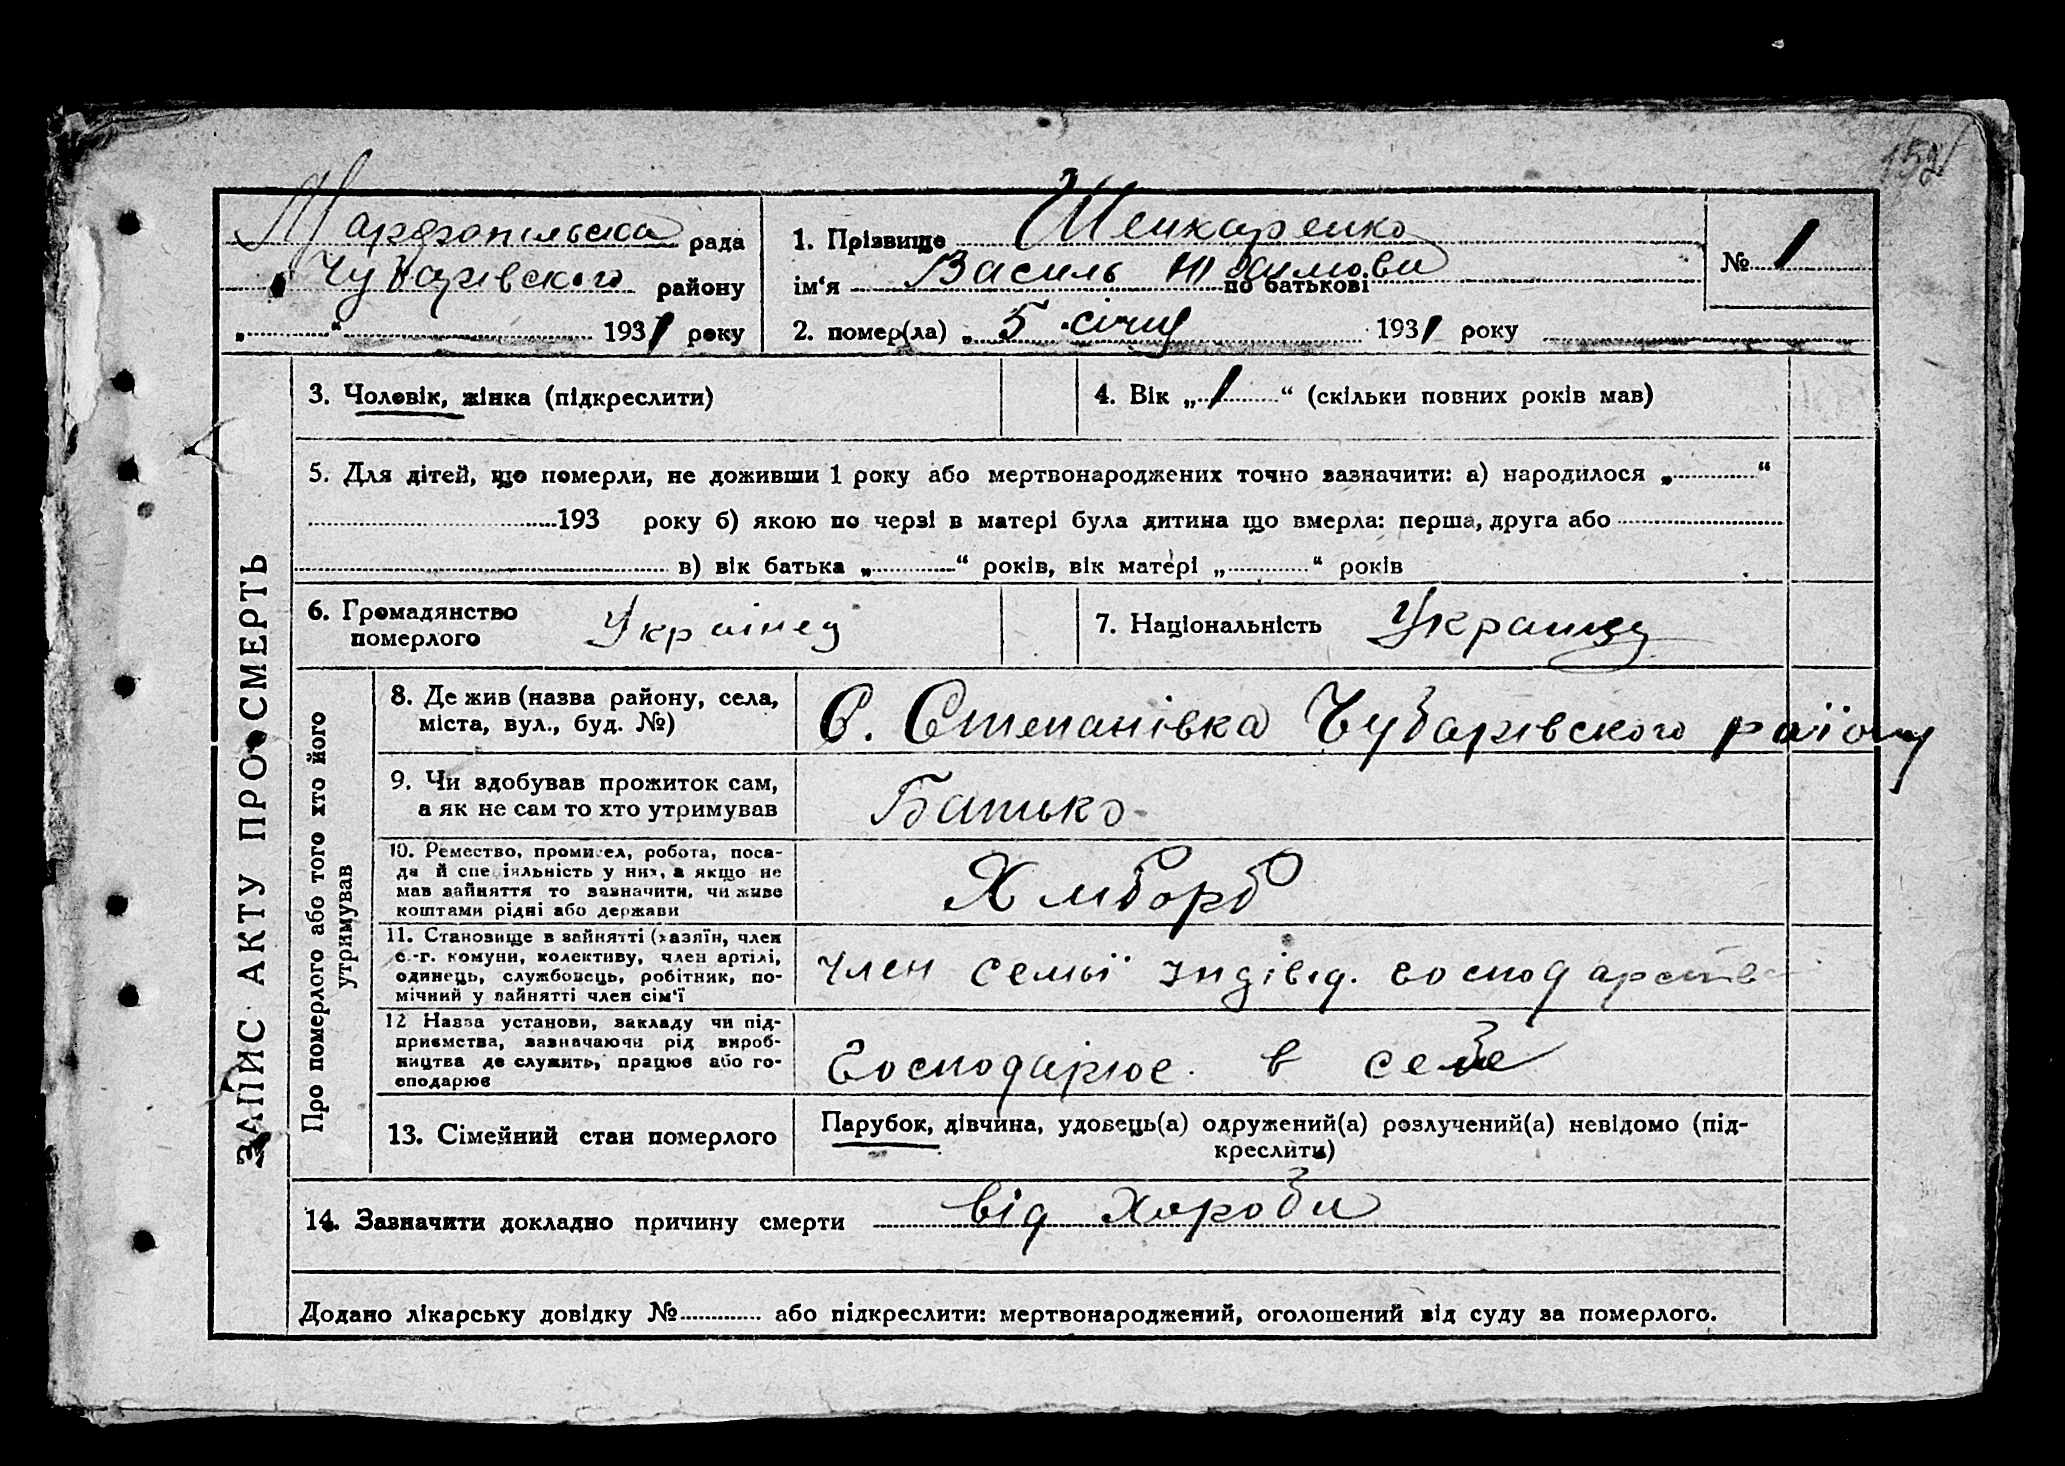 152
Марфопільська рада
Чубарівского району
„ “ 1931 року
1. Прізвище Шенкаренко
ім‘я Василь Юхимови по батькові
2. помер(ла) „ 5 січня 1931 року
№ 1
ЗАПИС АКТУ ПРО СМЕРТЬ
3. Чоловік, жінка (підкреслити)
4. Вік „ 1 “ (скільки повних років мав)
5. Для дітей, що померли, не доживши 1 року або мертвонароджених точно зазначити: а) народилося „ “
193 року б) якою по черзі в матері була дитина що вмерла: перша, друга або
в) вік батька „ “ років, вік матері „ “ років
6. Громадянство
померлого
Українец
7. Національність Украинец
Про померлого або того хто його
утримував
8. Де жив (назва району, села,
міста, вул., буд. №)
С. Степанівка Чубарівского району
9. Чи здобував прожиток сам,
а як не сам то хто утримував
Батько
10. Ремество, промисел, робота, поса-
да й спеціяльність у них, а якщо не
мав зайняття то зазначити, чи живе
коштами рідні або держави
Хлібороб
11. Становище в зайнятті (хазяїн, член
с.-г. комуни, колективу, член артілі,
одинець, службовець, робітник, по-
мічний у зайнятті член сім‘ї
член семьї індівід. господарства
12 Назва установи, закладу чи під-
приємства, зазначаючи рід вироб-
ництва де служить, працює або го-
сподарює
Господарює в себе
13. Сімейний стан померлого
Парубок, дівчина, удовець(а) одружений(а) розлучений(а) невідомо (під-
креслити)
14. Зазначити докладно причину смерти від хороби
Додано лікарську довідку № або підкреслити: мертвонароджений, оголошений від суду за померлого.